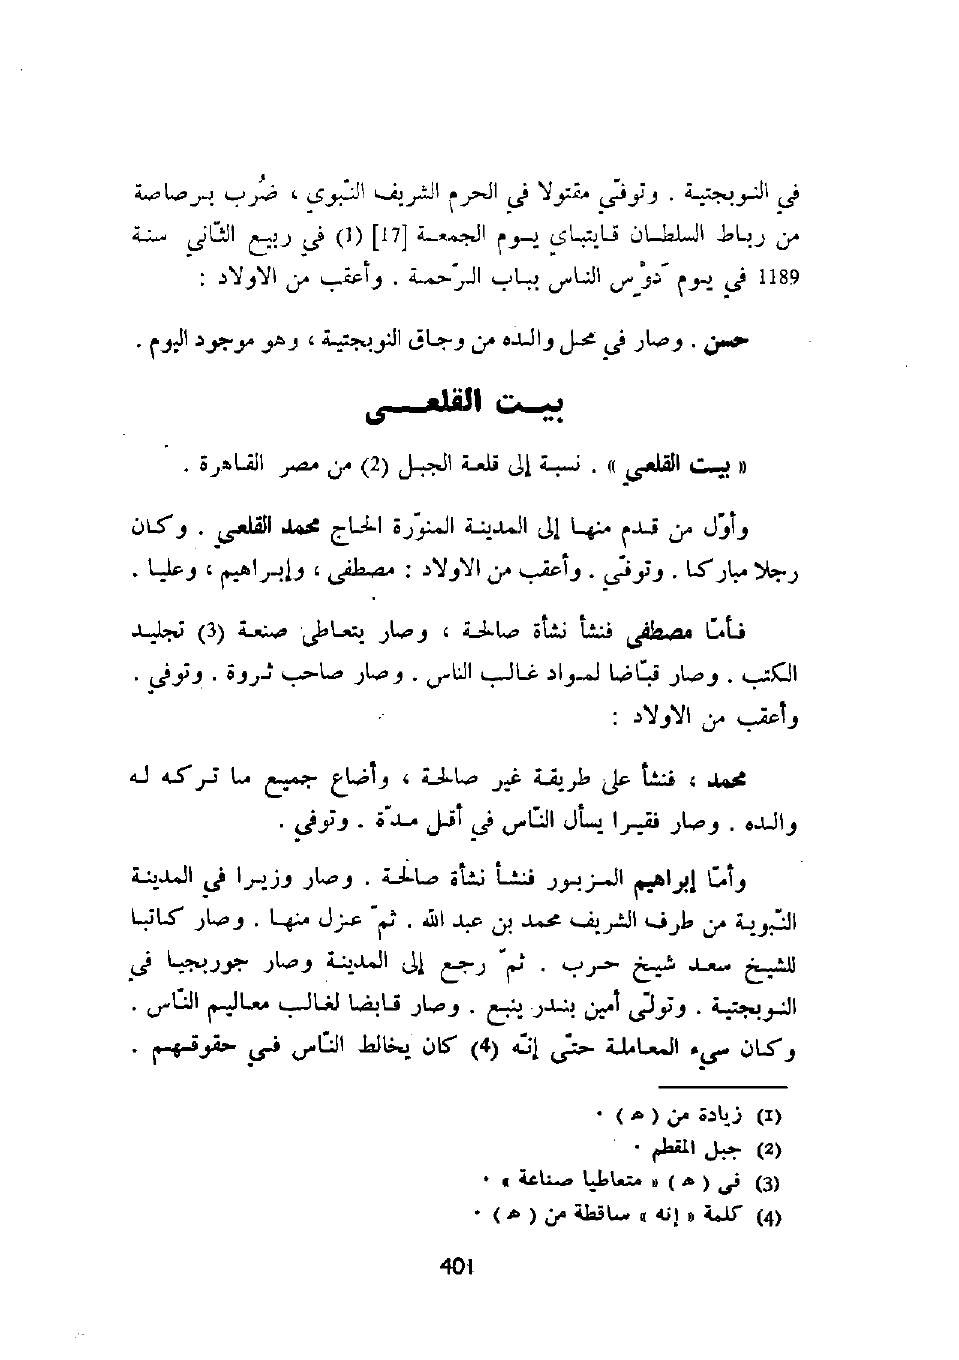 في النوبجتية . وتوفّي مقتولا في الحرم الشريف النّبوي ، ضُرب برصاصة
من رباط السلطان قايتباي يوم الجمعة [17] (1) في ربيع الثّاني سنة
1189 في يوم دَوْسِ الناس بباب الرّحمة . وأعقب من الاولاد :
حسن . وصار في محل والده من وجاق النوبجتية ، وهو موجود اليوم .
بيت القلعي
« بيت القلعي » . نسبة إلى قلعة الجبل (2) من مصر القاهرة .
وأوّل من قدم منها إلى المدينة المنوّرة الحاج محمد القلعي . وكان
رجلا مباركا . وتوفّي . وأعقب من الاولاد : مصطفى ، وإبراهيم ، وعليا .
فأمّا مصطفى فنشأ نشأة صالحة ، وصار يتعاطى صنعة (3) تجليد
الكتب . وصار قبّاضا لمواد غالب الناس . وصار صاحب ثروة . وتوفي .
وأعقب من الاولاد :
محمد ، فنشأ على طريقة غير صالحة ، وأضاع جميع ما تركه له
والده . وصار فقيرا يسأل النّاس في أقل مدّة . وتوفي .
وأمّا إبراهيم المزبور فنشأ نشأة صالحة . وصار وزيرا في المدينة
النّبوية من طرف الشريف محمد بن عبد الله . ثمّ عزل منها . وصار كاتبا
للشيخ سعد شيخ حرب . ثمّ رجع إلى المدينة وصار جوربجيا في
النوبجتية . وتولّى أمين بندر ينبع . وصار قابضا لغالب معاليم النّاس .
وكان سيء المعاملة حتّى إنّه (4) كان يخالط النّاس في حقوقهم .
(1) زيادة من ( ه ) .
(2) جبل المقطم .
(3) في ( ه ) « متعاطيا صناعة » .
(4) كلمة « إنه » ساقطة من ( ه ) .
401